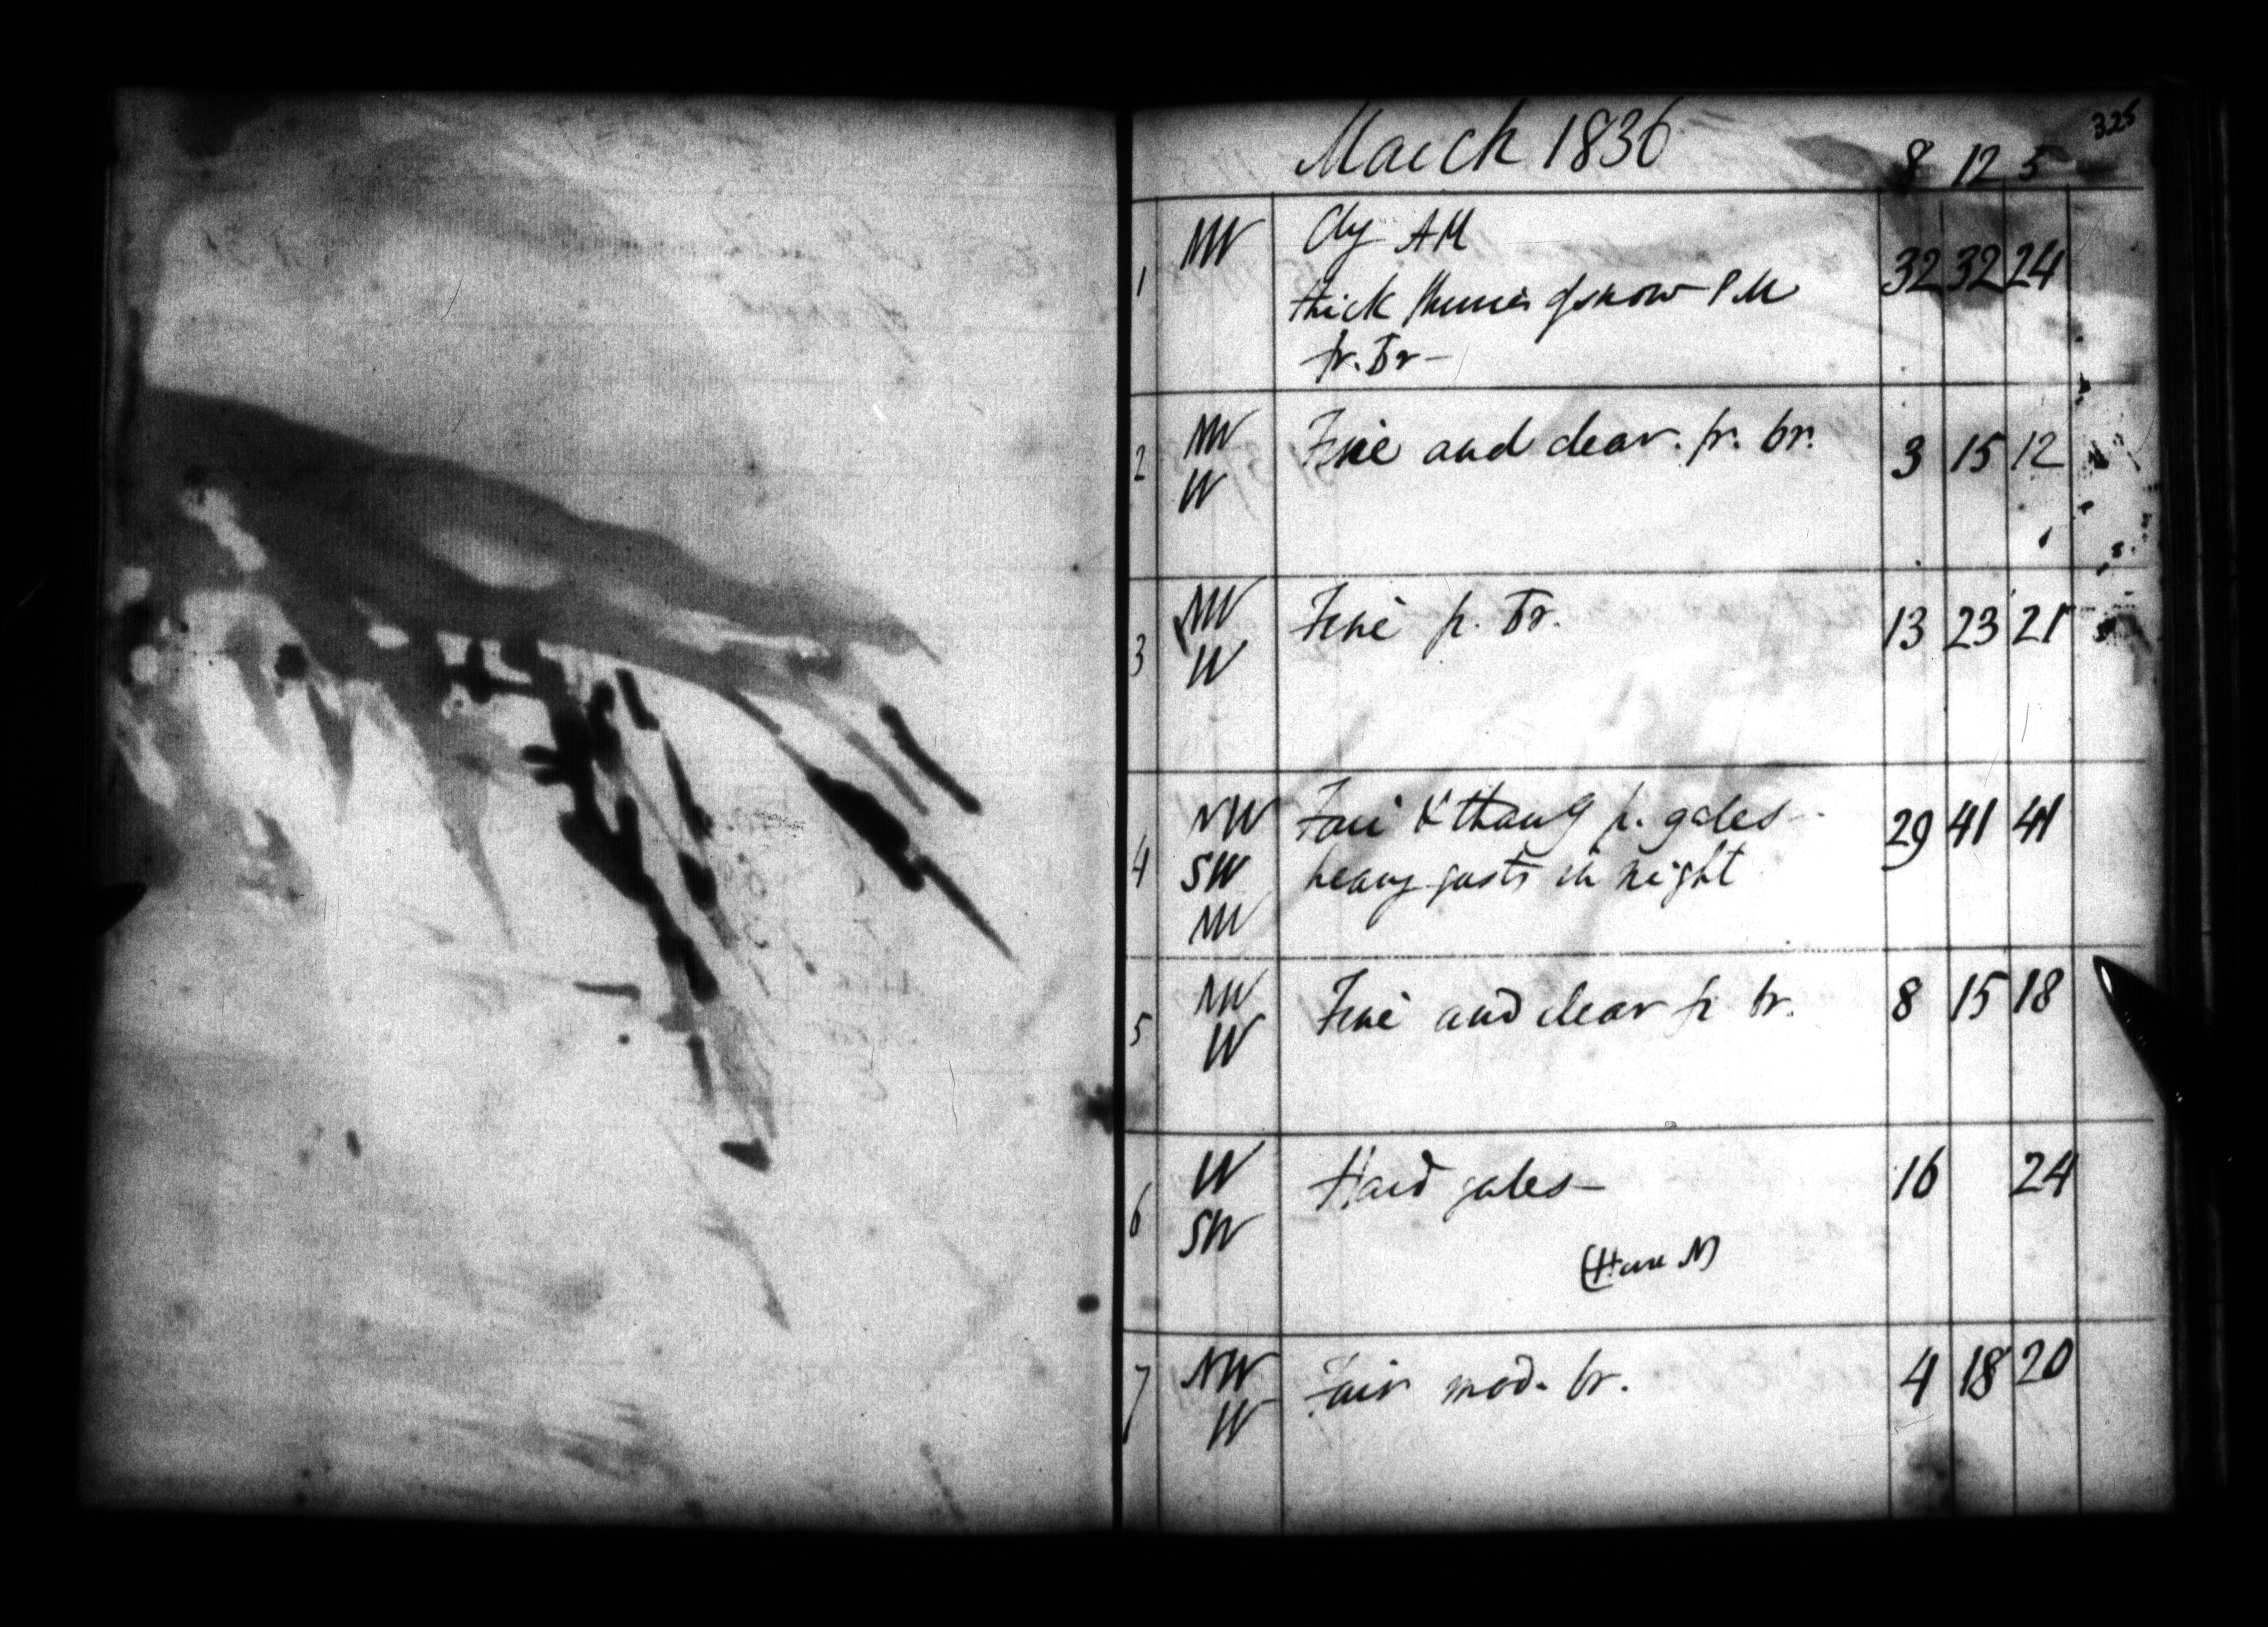 325
March 1836
8 12 5
1 NW Cly AM 32 32 24
thick flurries of snow PM
fr. Br—
2 NW Fine and clear. fr. br. 3 15 12
W
3 NW Fine fr. Br. 13 23 21
W
4 NW Fair & thawg fr. gales 29 41 41
SW heavy gusts in night
NW
5 NW Fine and clear fr br. 8 15 18
W
6 W Hard gales— 16 24
SW
7 NW Fair mod. br. 4 18 20
W